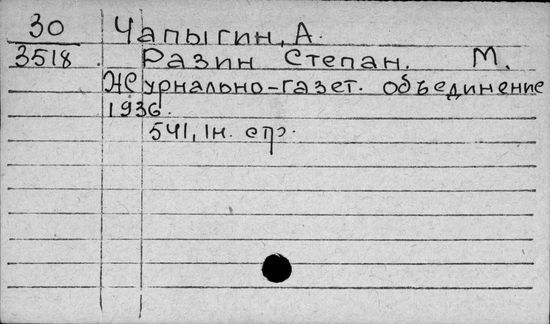 30 Чапыгин, А.
3518 Разин Степан. М.
Журнально-газет. объединение
1936.
541, 1н. стр.